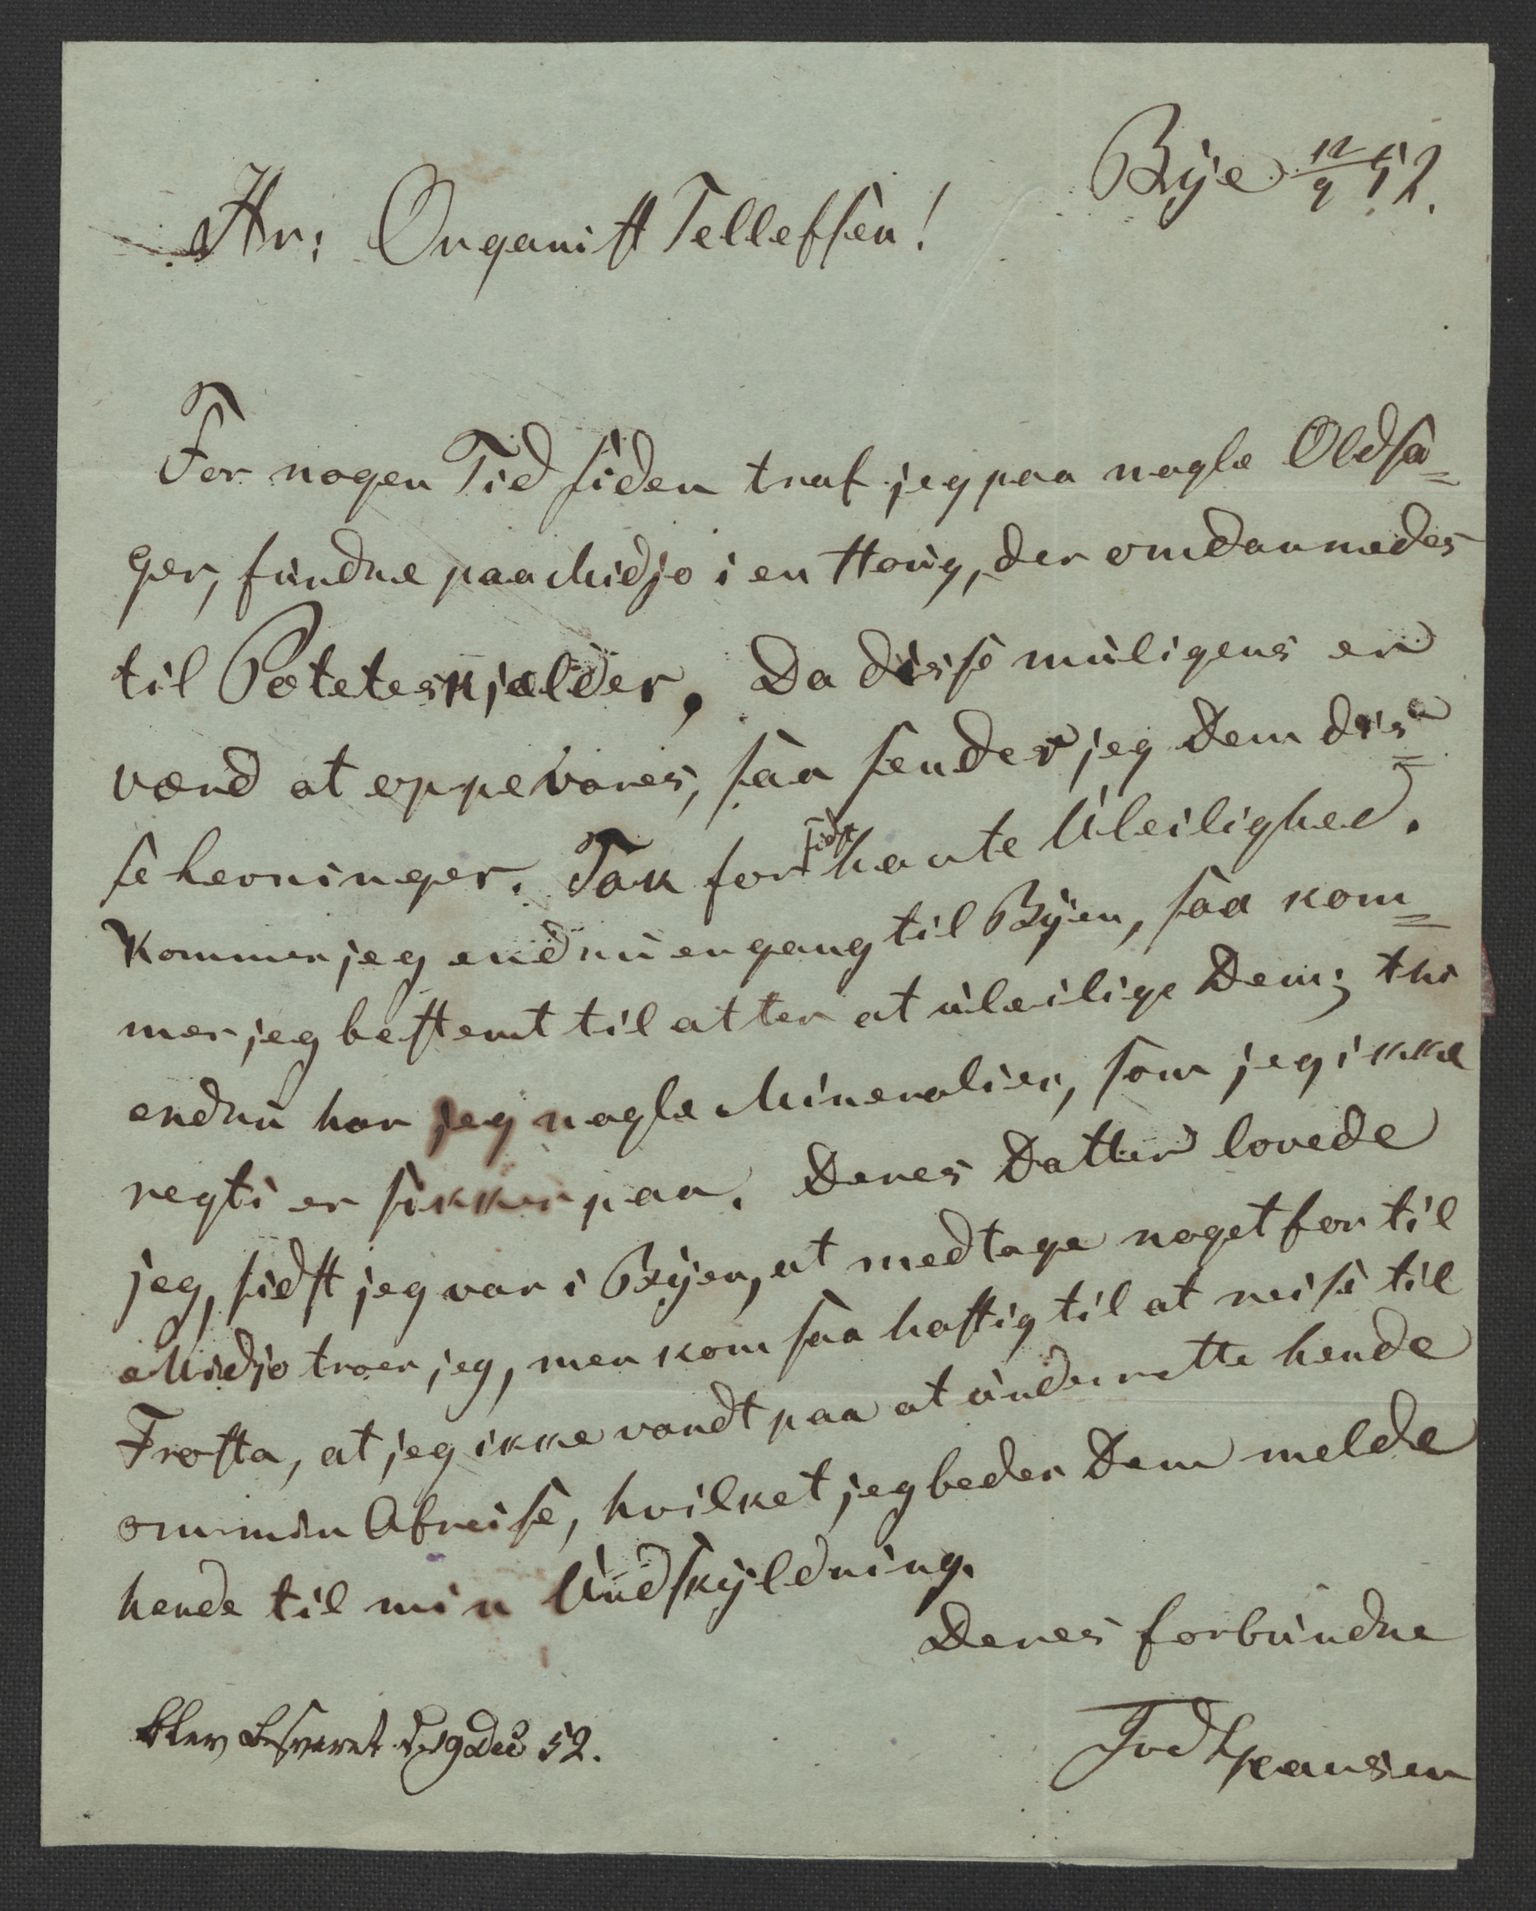 Bye 12/9 52.
Hr: Organist Tellefsen!
For nogen Tid siden traf jeg paa nogle Oldsa=
ger, fundne paa Midjo i en Houg, der omdannedes
til Poteteskjælder. Da disse muligens er
værd at oppevares, saa sender jeg Dem dis=
se levninger. Tak for sidst havte Uleilighed.
Kommer jeg endnu engang til Byen, saa kom=
mer jeg bestemt til atter at uleilige Dem; thi
endnu har jeg nogle Mineralier, som jeg ikke
regti er sikker paa. Deres Datter lovede
jeg, sidst jeg var i Byen, at medtage noget for til
Midjo troer jeg, men kom saa hastig til at reise til
Frosta, at jeg ikke vandt paa at underrette hende
om min Afreise, hvilket jeg beder Dem melde
hende til min Undskyldning.
Deres forbundne
Hansen
blev besvaret d. 19 Dec 52.